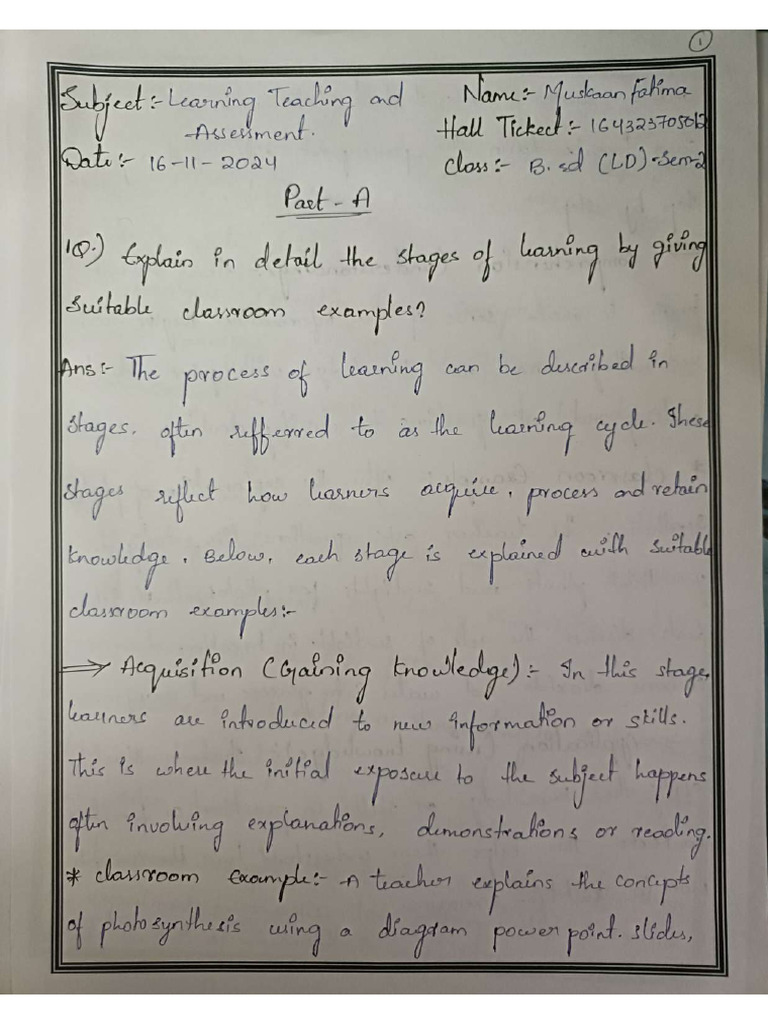 1
Subject:- Learning Teaching and Name:- Muskaan Fatima
Assessment. Hall Tickect:- 164323705012
Date:- 16-11-2024 Class:- B.sd (LD)-Sem-2
Part-A
1Q.) Explain in detail the stages of learning by giving
suitable classroom examples?
Ans:- The process of learning can be described in
stages, often refferred to as the learning cycle. These
stages reflect how learners acquire, process and retain
knowledge. Below, each stage is explained with suitable
classroom examples:-
⇒ Acquisition (Gaining knowledge):- In this stage,
learners are introduced to new information or skills.
This is where the initial exposure to the subject happens
often involving explanations, demonstrations or reading.
* classroom Example:- A teacher explains the concepts
of photosynthesis using a diagram power point. slides,